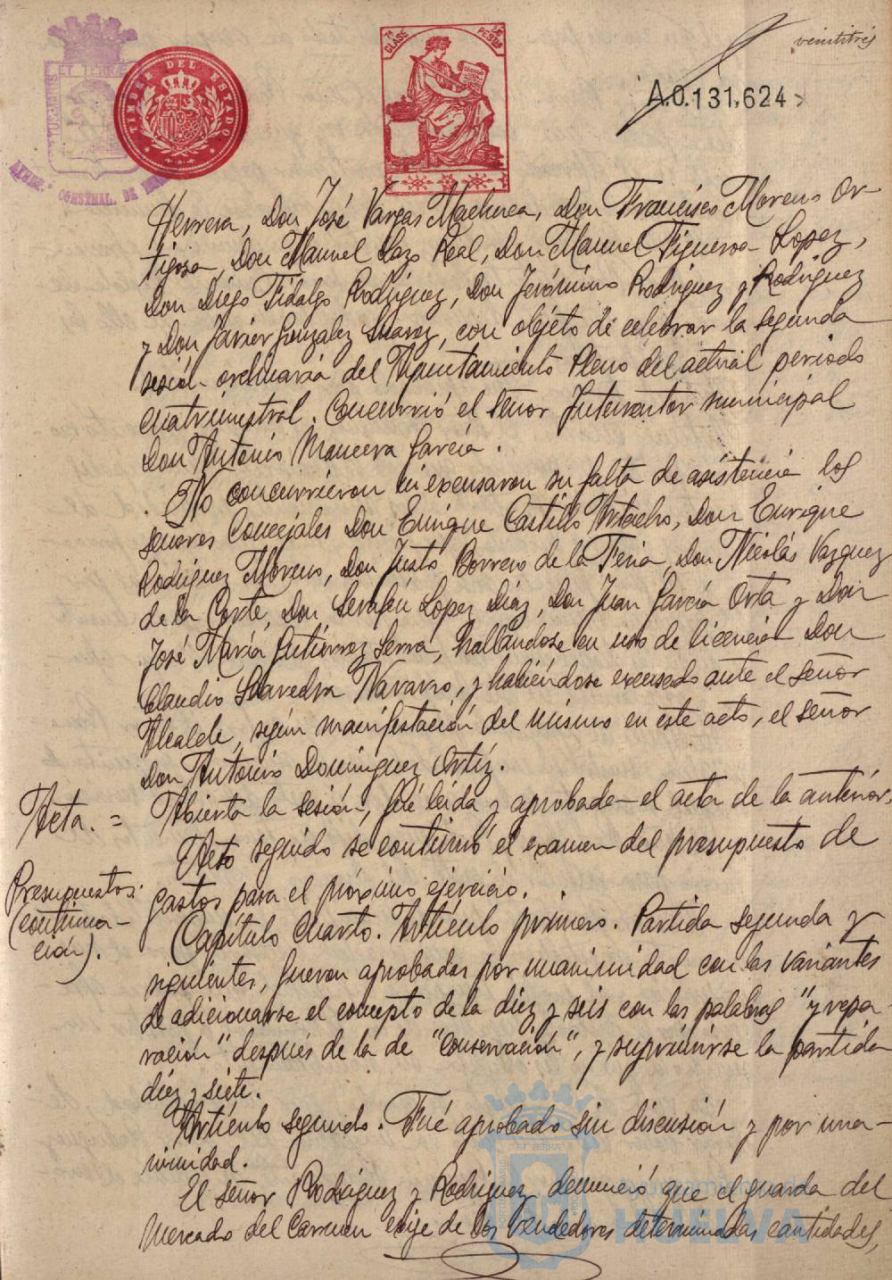 veintitrés
TIMBRE DEL ESTADO
7ª CLASE
PESETAS
A.0.131,624
Herrera, Don José Vargas Machuca, Don Francisco Moreno Or-
tigosa, Don Manuel Lazo Real, Don Manuel Figueroa Lopez,
Don Diego Fidalgo Rodríguez, Don Jerónimo Rodriguez y Rodríguez
y Don Javier Gonzalez Suarez, con objeto de celebrar la segunda
sesión ordinaria del Ayuntamiento Pleno del actual periodo
cuatrimestral. Concurrió el señor Interventor municipal
Don Antonio Mancera García.
No concurrieron ni excusaron su falta de asistencia los
señores Concejales Don Enrique Castillo Artacho, Don Enrique
Rodríguez Moreno, Don Justo Borrero de la Feria, Don Nicolás Vazquez
de la Corte, Don Serafín Lopez Díaz, Don Juan García Orta y Don
José María Gutiérrez Serra, hallandose en uso de licencia Don
Claudio Saavedra Navarro, y habiéndose excusado ante el señor
Alcalde, según manifestación del mismo en este acto, el señor
Don Antonio Dominguez Ortíz.
Acta. = Abierta la sesión, fué leída y aprobada el acta de la anterior.
Acto seguido se continuó el examen del presupuesto de
Presupuestos: gastos para el próximo ejercicio.
(continua-
ción). Capítulo cuarto. Artículo primero. Partida segunda y
siguientes, fueron aprobadas por unanimidad con las variantes
de adicionarse el concepto de la diez y seis con las palabras "y repa
ración" después de la de "conservación", y suprimirse la partida
diez y siete.
Artículo segundo. Fué aprobado sin discusión y por una-
nimidad.
El señor Rodríguez y Rodríguez denunció que el guarda del
Mercado del Carmen exije de los vendedores determinadas cantidades,
HUELVA